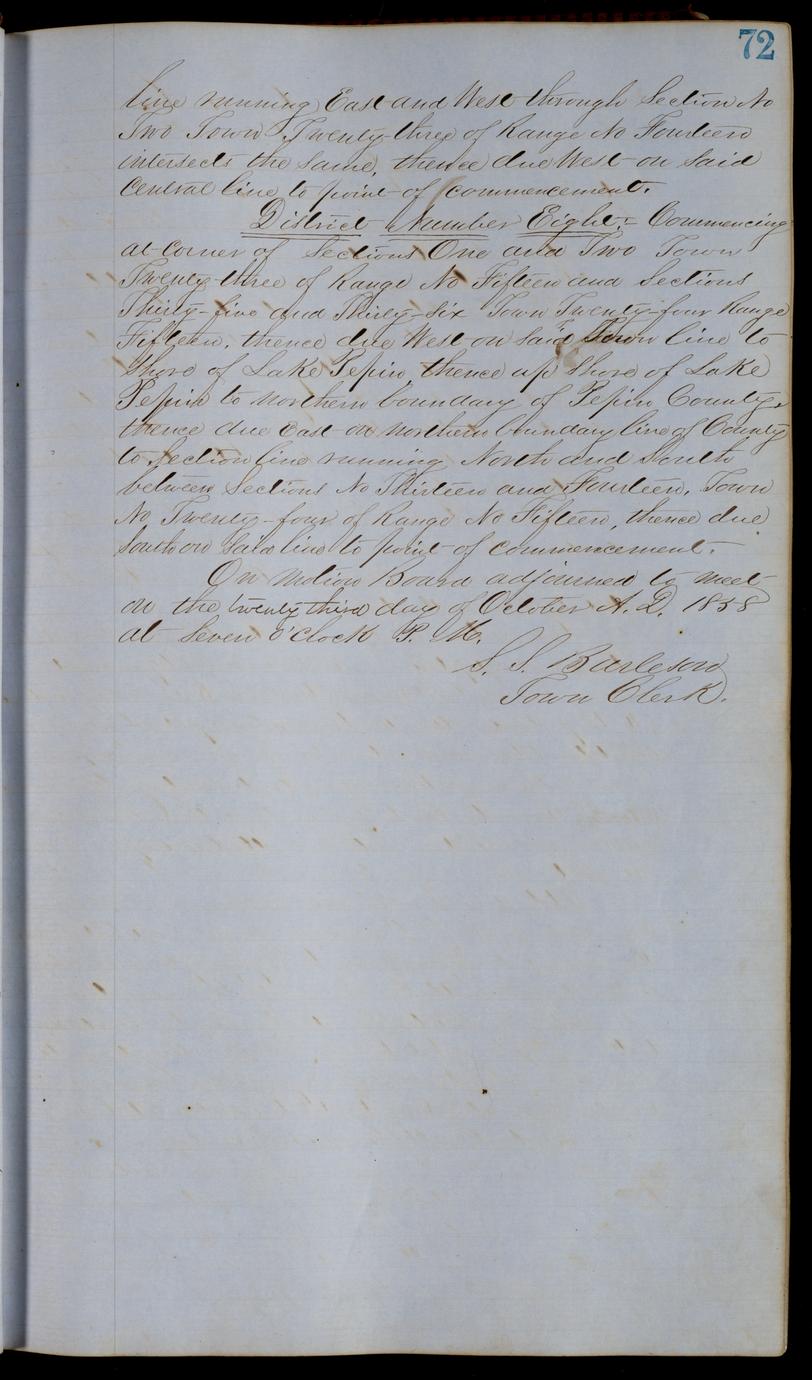 72
line running East and West through Section No
Two Town Twenty-three of Range No Fourteen
intersects the same, thence due West on said
Central line to point of commencement.
District Number Eight:- Commencing
at corner of Sections One and Two Town
Twenty-three of Range No Fifteen and Sections
Thirty-five and Thirty-six Town Twenty-four Range
Fifteen, thence due West on said Town line to
Shore of Lake Pepin, thence up Shore of Lake
Pepin to northern boundary of Pepin County,
thence due East on northern boundary line of County
to Section line running North and South
between Sections No Thirteen and Fourteen, Town
No Twenty-four of Range No Fifteen, thence due
South on said line to point of commencement.
On motion Board adjourned to meet
on the twenty third day of October A. D. 1858
at Seven o'clock P. M.
S. S. Burleson
Town Clerk.